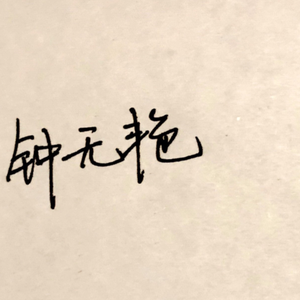 钟无艳